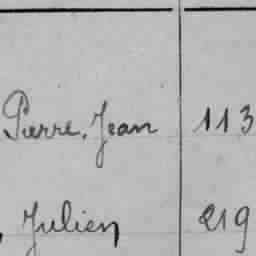 Pierre, Jean 113
, Julien 219